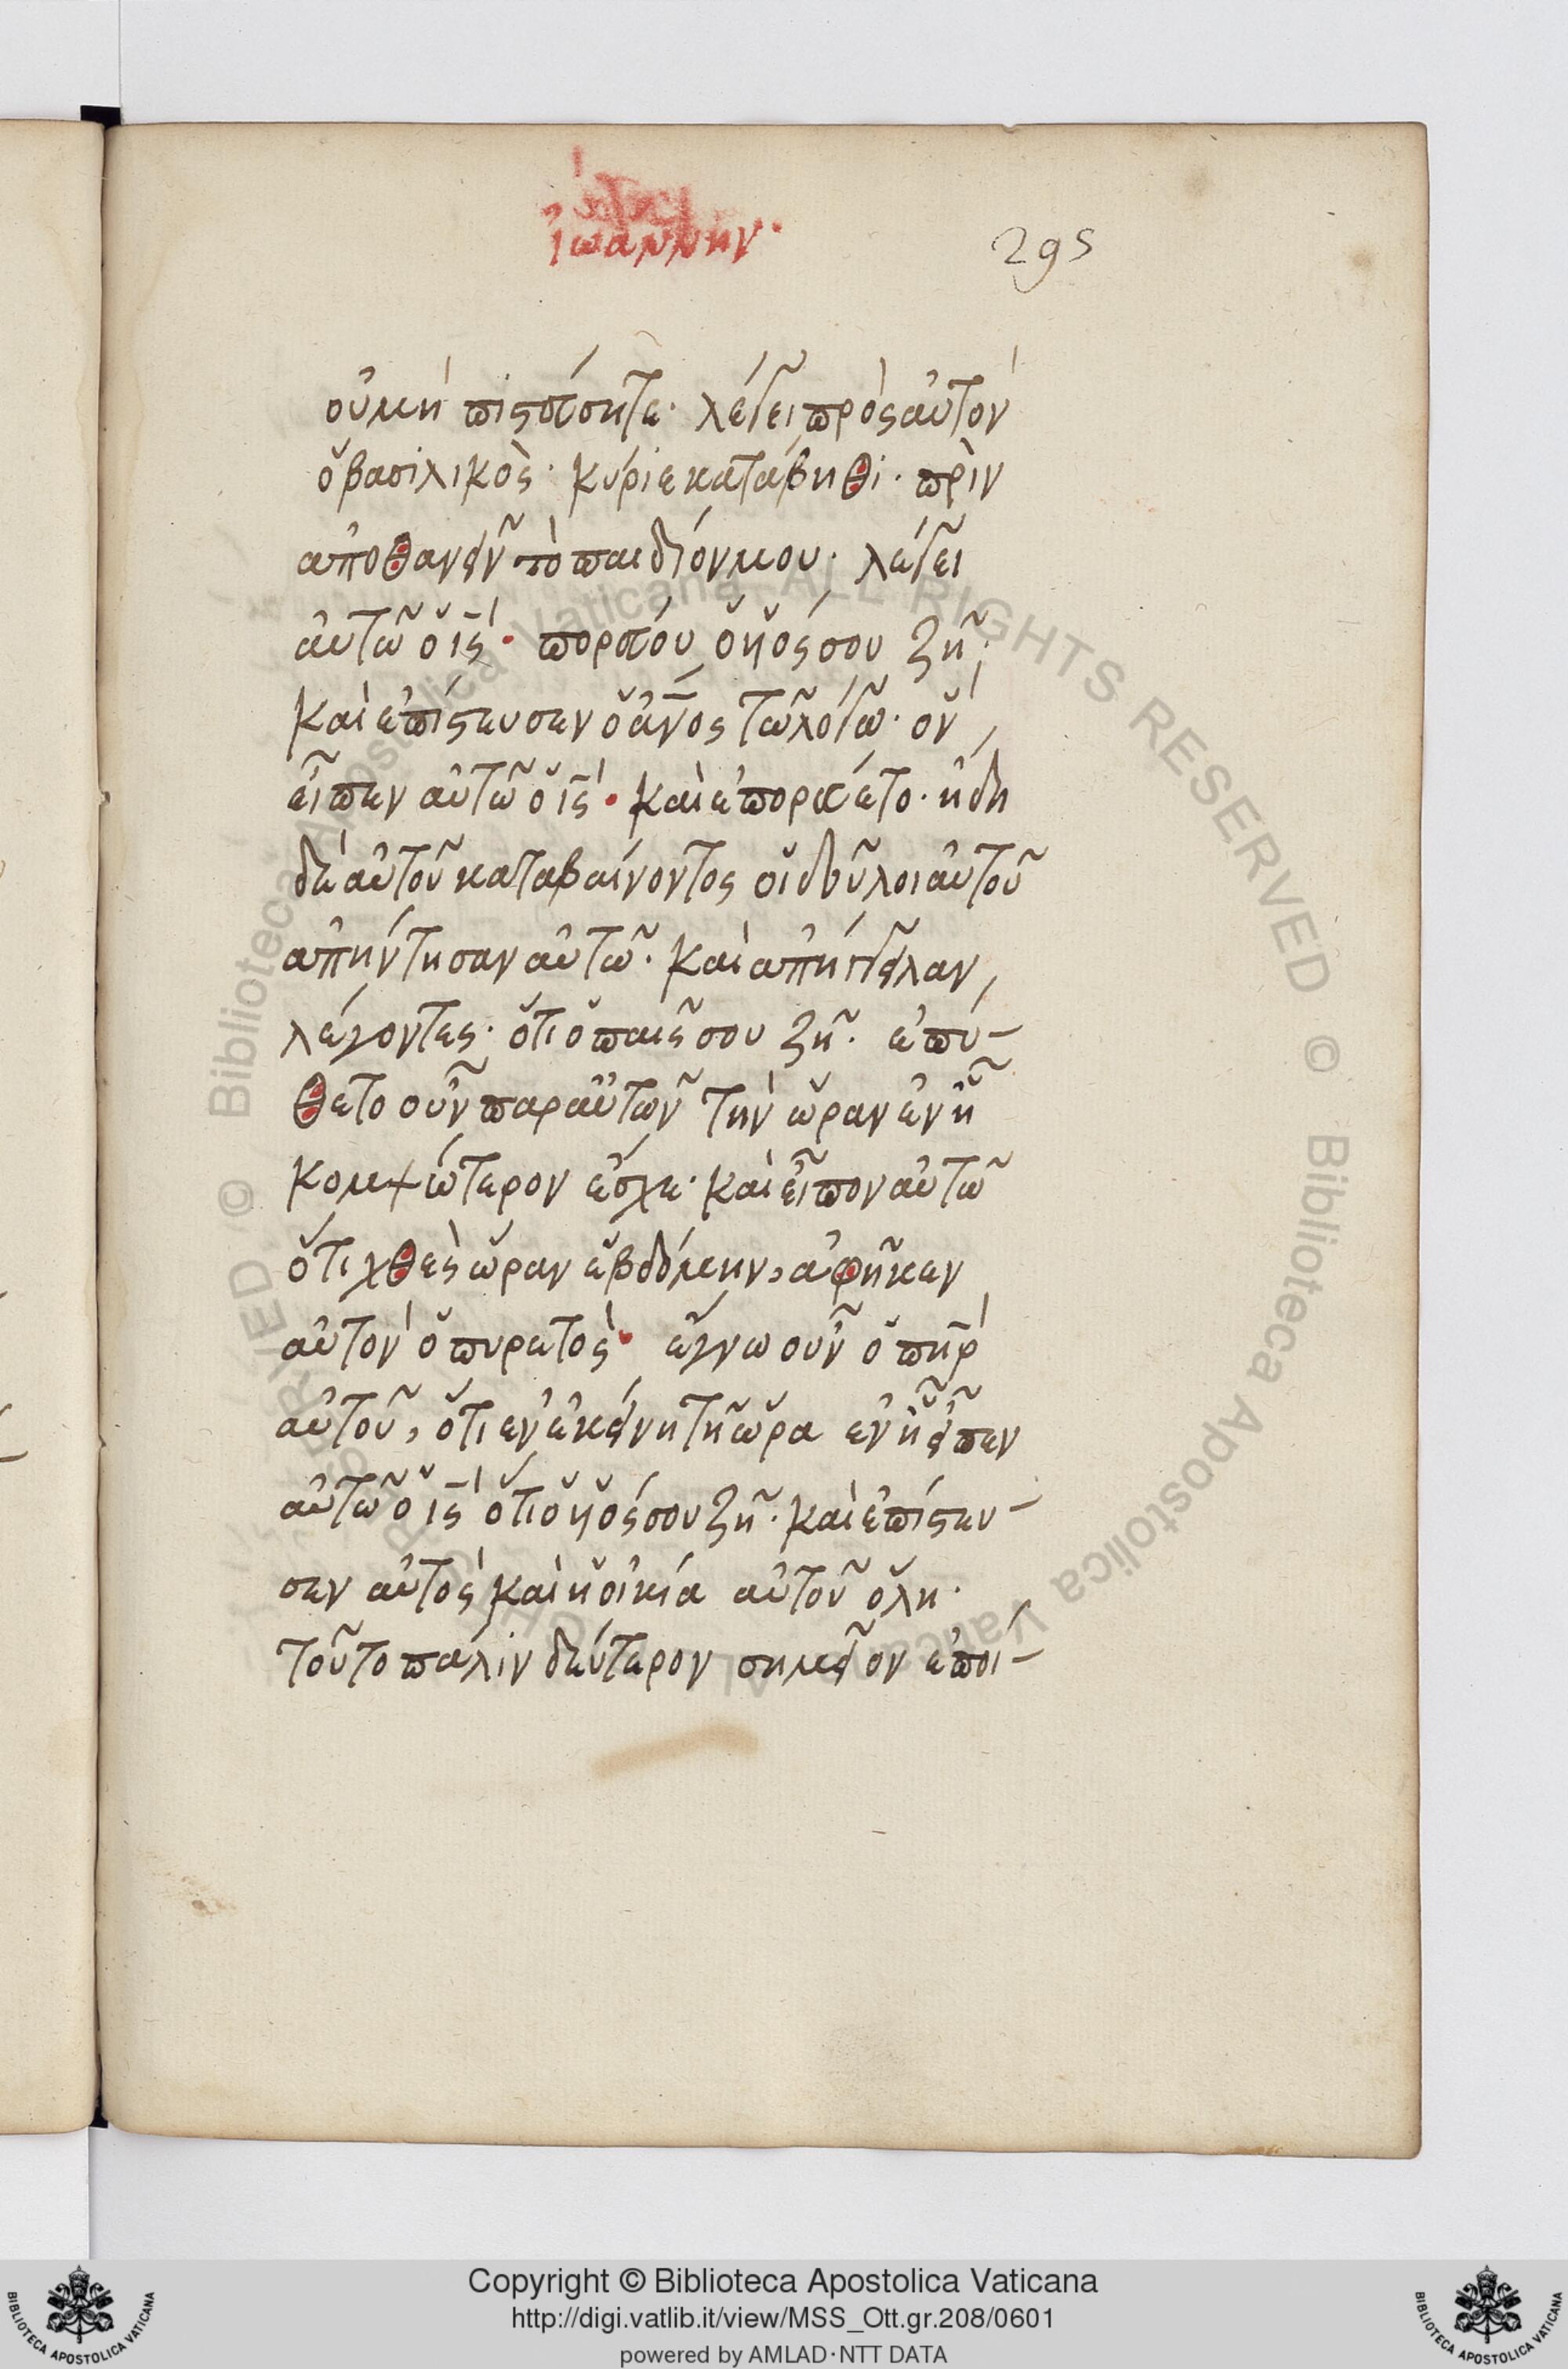 ἰωάννην·
295
οὐ μὴ πιστεύσητε· λέγει πρὸς αὐτὸν
ὁ βασιλικὸς· κύριε κατάβηθι· πρὶν
ἀποθανεῖν τὸ παιδίον μου· λέγει
αὐτῶ ὁ ις· πορεύου ὁ ὑός σου ζῆ·
καὶ ἐπίστευσεν ὁ ἄνος τῶ λόγω· ὃν
εἶπεν αὐτῶ ὁ ις· καὶ ἐπορεύετο· ἤδη
δὲ αὐτοῦ καταβαίνοντος οἱ δοῦλοι αὐτοῦ
ἀπήντησαν αὐτῶ· καὶ ἀπήγγειλαν,
λέγοντες· ὅτι ὁ παῖς σου ζῆ· ἐπύ-
θετο οὖν παρ αὐτῶν τὴν ὥραν ἐν ἧ
κομψότερον ἔσχε· καὶ εἶπον αὐτῶ
ὅτι χθὲς ὥραν ἑβδόμην, ἀφῆκεν
αὐτὸν ὁ πυρετὸς· ἔγνω οὖν ὁ πηρ
αὐτοῦ, ὅτι ἐν ἐκείνη τῆ ὥρα ἐν ἧ εἶπεν
αὐτῶ ὁ ις ὅτι ὁ ὑός σου ζῆ· καὶ ἐπίστευ-
σεν αὐτὸς καὶ ἡ οἰκία αὐτοῦ ὅλη·
τοῦτο πάλιν δεύτερον σημεῖον ἐποί-
Copyright © Biblioteca Apostolica Vaticana
http://digi.vatlib.it/view/MSS_Ott.gr.208/0601
powered by AMLAD·NTT DATA